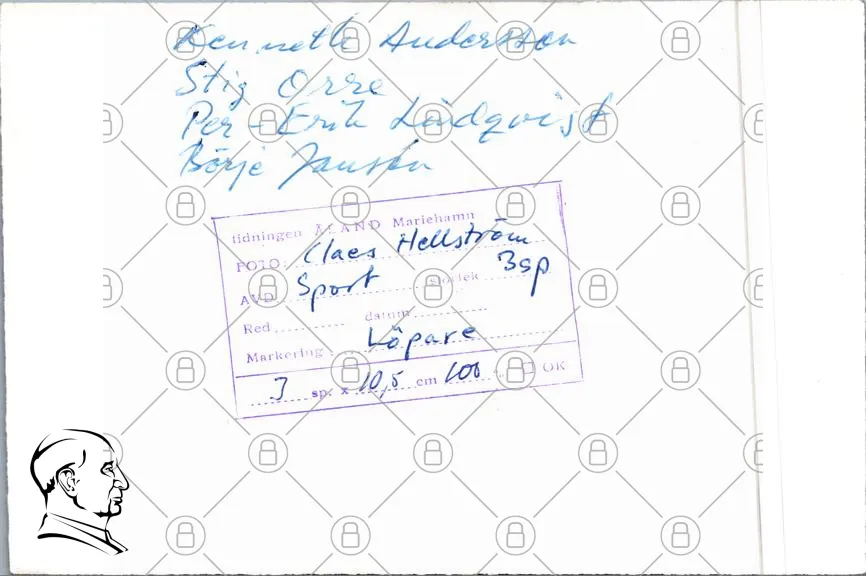 Kenneth Andersson
Stig Orre
Per-Erik Lindqvist
Börje Jansson
tidningen ÅLAND Mariehamn
FOTO: Claes Hellström
AVD. Sport storlek 3sp
Red. datum
Markering Löpare
3 sp. x 10,5 cm 100 OK